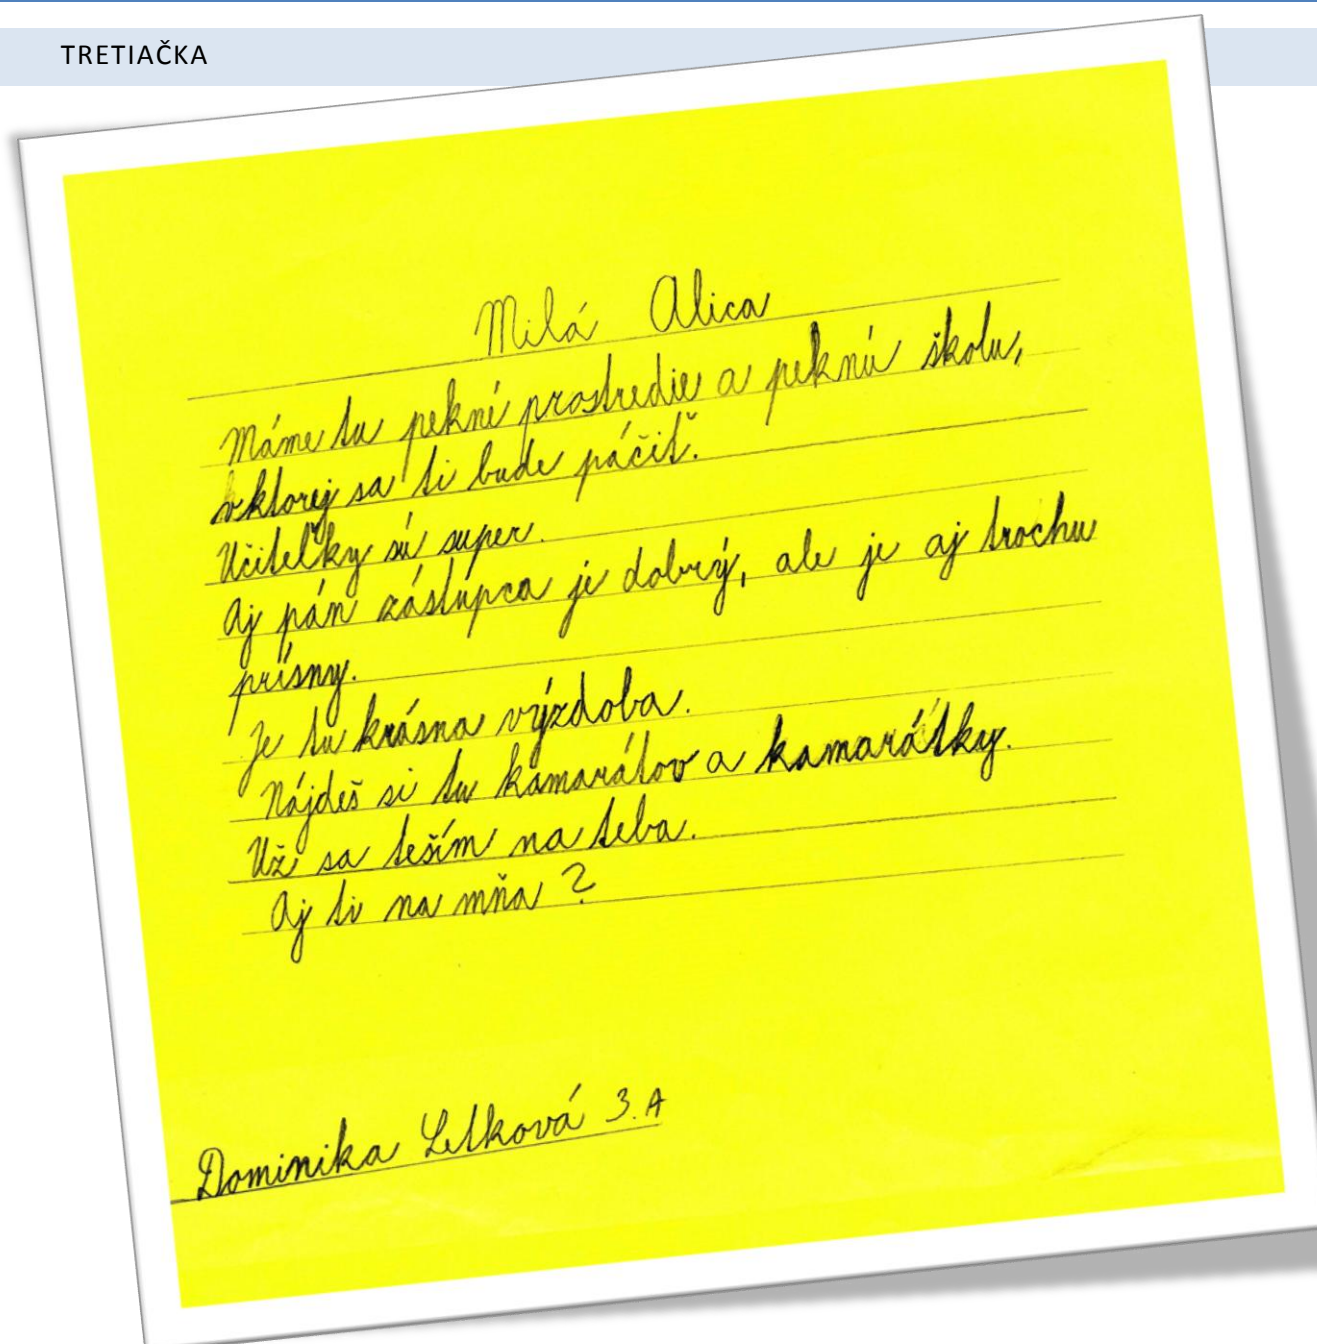 TRETIAČKA
Milá Alica
Máme tu pekní prostredie a peknú školu,
v ktorej sa ti bude páčiť.
Učiteľky sú super.
Aj pán zástupca je dobrý, ale je aj trochu
prísny.
Je tu krásna výzdoba.
Nájdeš si tu kamarátov a kamarátky.
Už sa teším na teba.
Aj ti na mňa ?
Dominika Letková 3. A